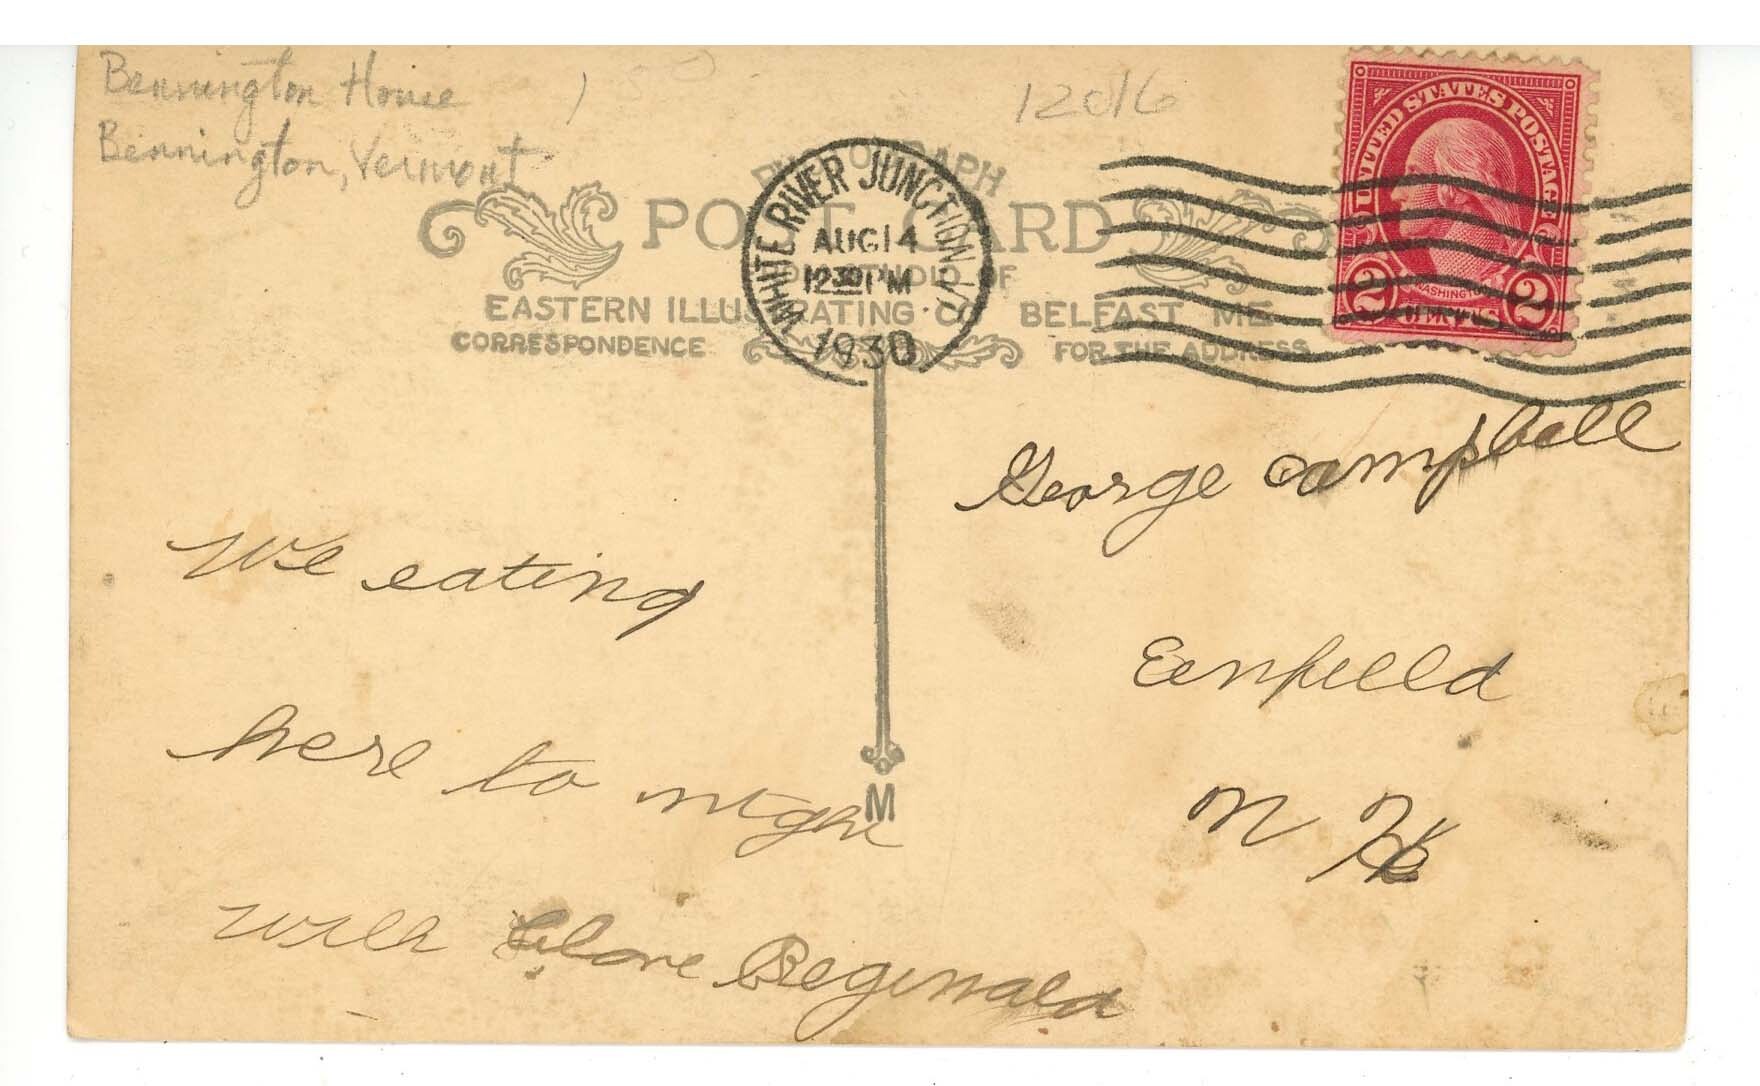 Bennington House
Bennington, Vermont
12016
PHOTOGRAPH
POST CARD
STUDIO OF
EASTERN ILLUSTRATING CO. BELFAST ME.
CORRESPONDENCE
FOR THE ADDRESS
WHITE RIVER JUNCTION
AUG 14
12 30 PM
1930
UNITED STATES POSTAGE
WASHINGTON
2 CENTS 2
George Campbell
Eenfield
N H
We eating
here to night
will Clove Reginald
M